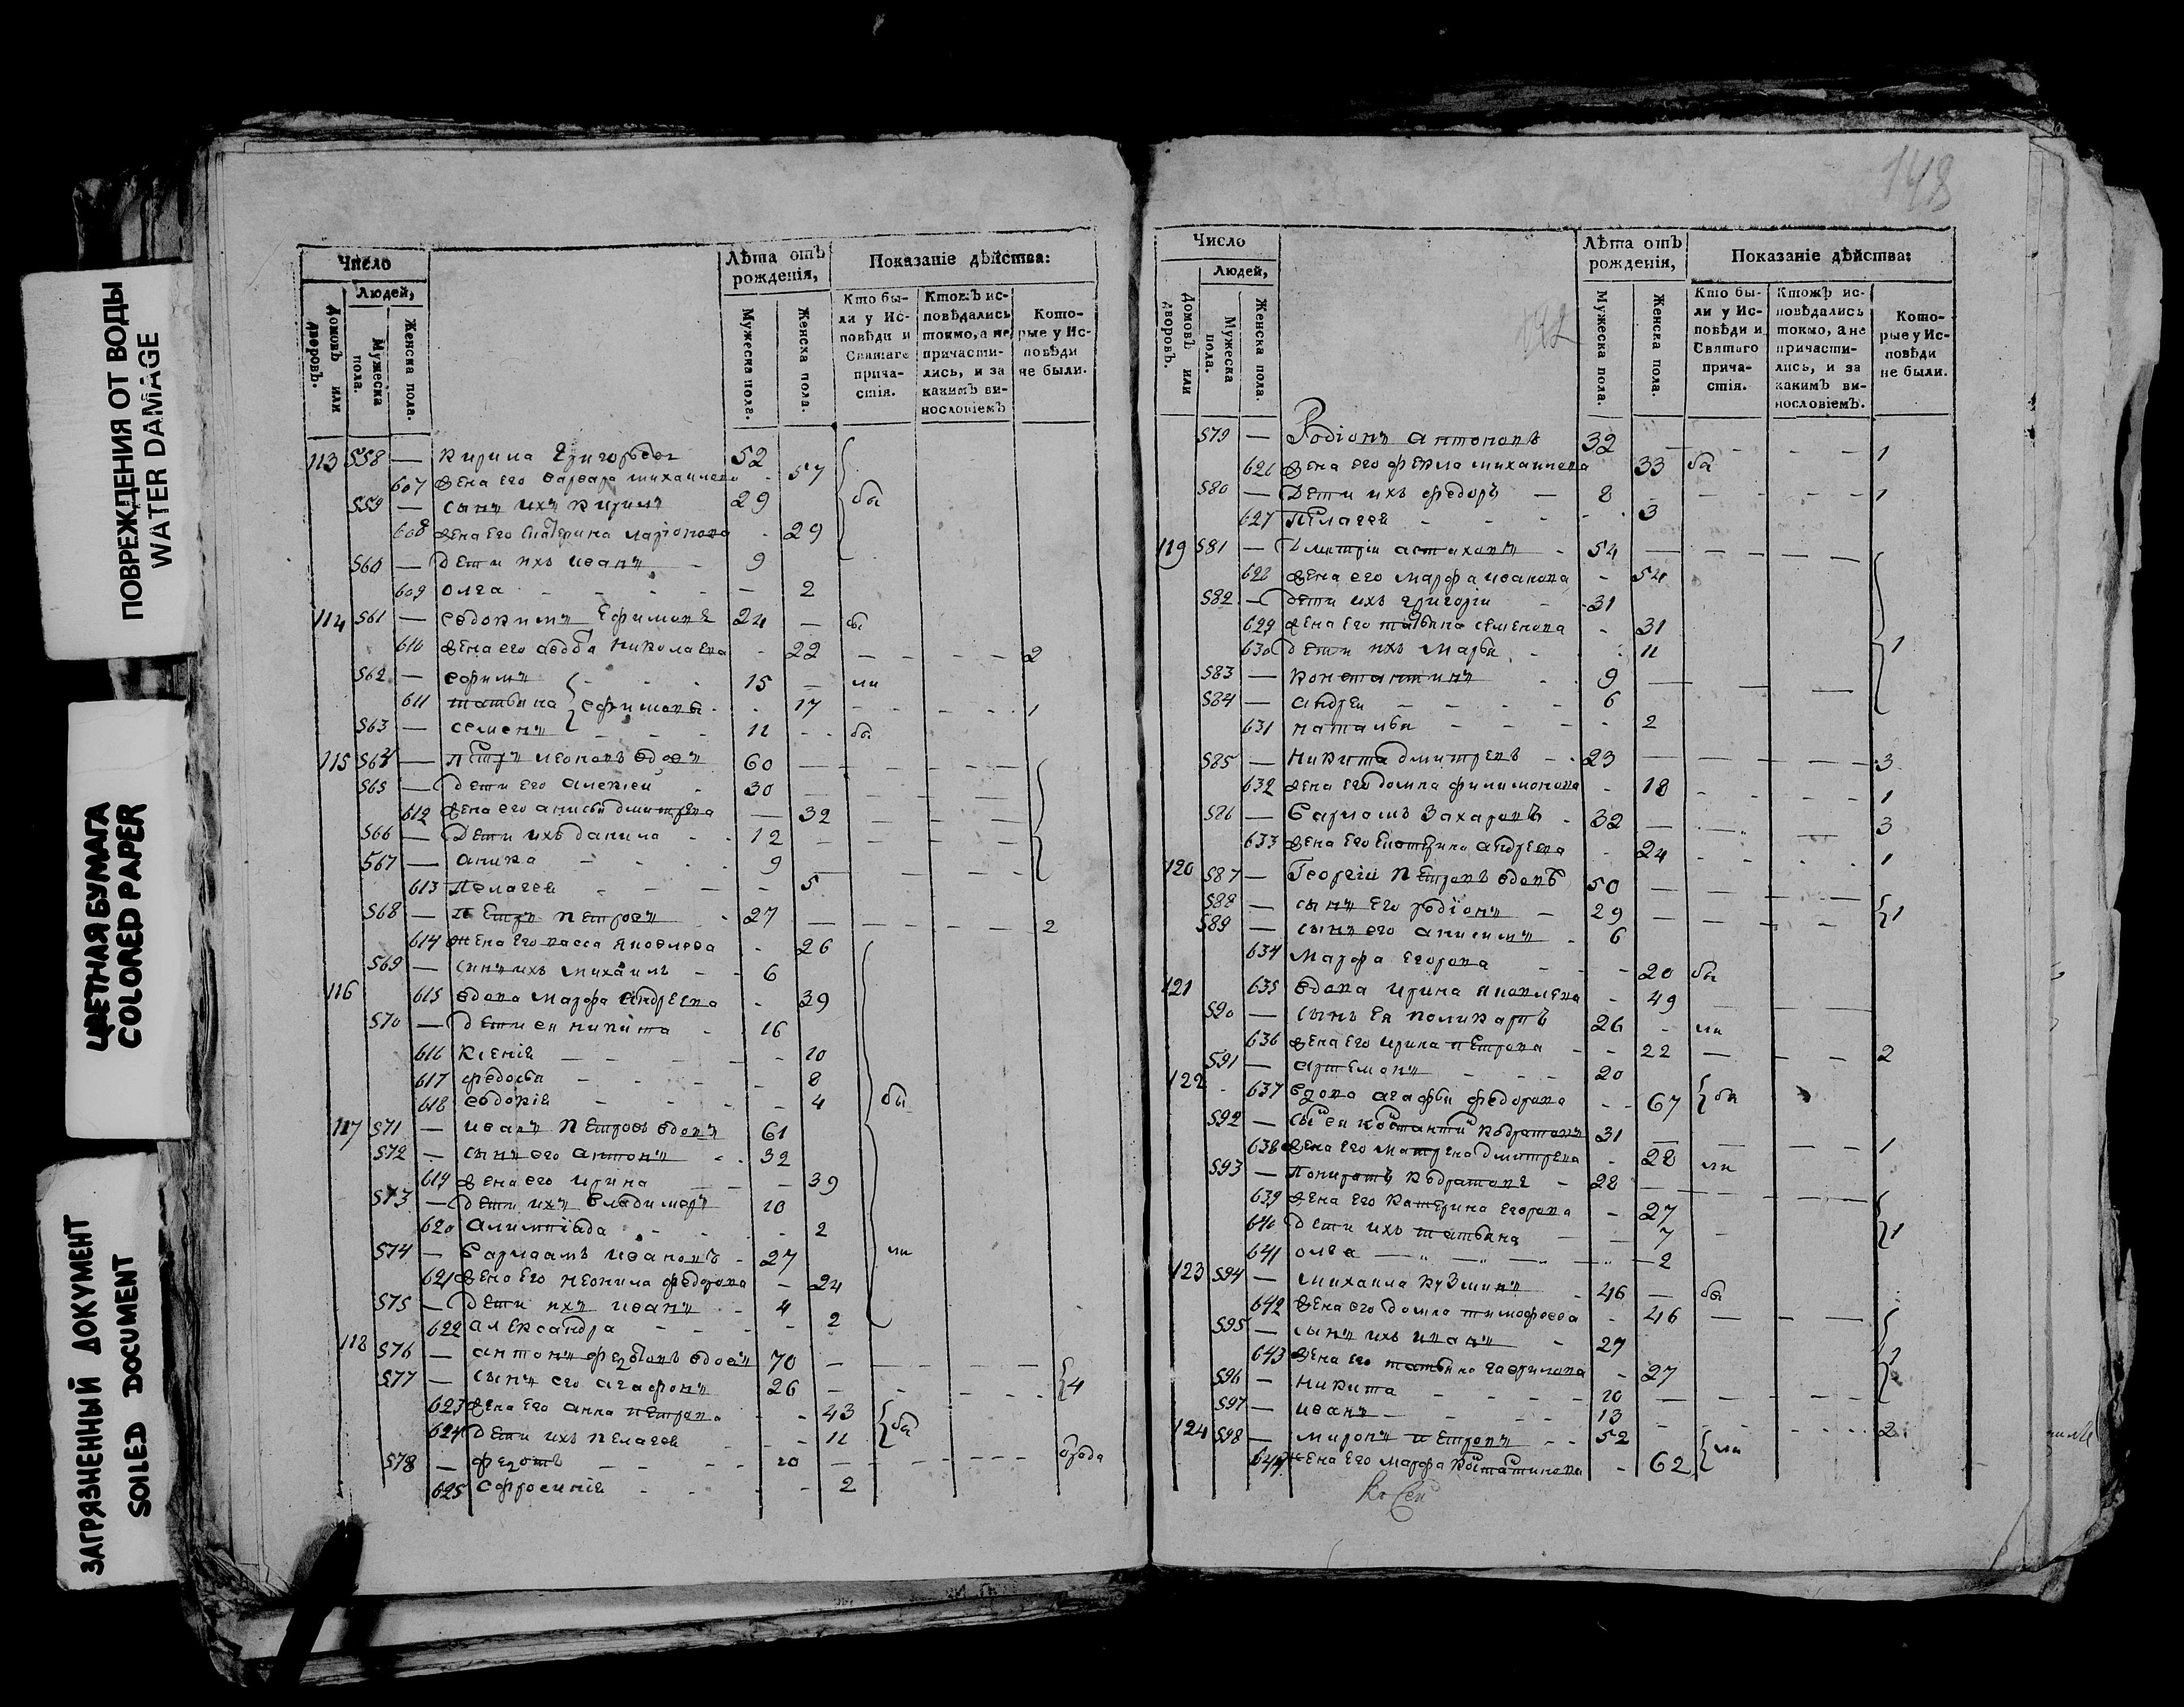 ПОВРЕЖДЕНИЯ ОТ ВОДЫ
WATER DAMAGE
ЦВЕТНАЯ БУМАГА
COLORED PAPER
ЗАГРЯЗНЕННЫЙ ДОКУМЕНТ
SOILED DOCUMENT
Число
Людей,
Домовъ или дворовъ.
Мужеска пола.
Женска пола.
Лѣта отъ рожденія,
Мужеска пола.
Женска пола.
Показаніе дѣйства:
Кто были у Исповѣди и Святаго причастія.
Ктожъ исповѣдались токмо, а не причастились, и за какимъ винословіемъ
Которые у Исповѣди не были.
113 558 — Кирила Григорьевъ 52
607 жена его варвара михаилова - 57
559 — сынъ ихъ кирилъ 29 бы
608 жена его Екатерина ларіонова - 29
560 — дети ихъ иванъ - 9
609 олга - - - - - 2
114 561 — евдокимъ Ефимовъ 24 — бы
610 жена его авдотья николаева - 22 — — — — 2
562 — ефимъ - - - 15 — ли
611 татьяна ефимовы - - 17 - - - - 1
563 — семенъ - - - 11 - - бы
115 564 — петръ леоновъ вдовъ 60 — — — — —
565 — дети его алексей - 30 — — — —
612 жена его анисья дмитрева — 32 — — — —
566 — дети ихъ данила - - 12 — — — —
567 — аника - - - 9 — — — —
613 пелагея - - - - 5
568 — петръ петровъ - 27 — — — — — 2
614 жена его васса яковлева - 26
569 — сынъ ихъ михаилъ - - 6
116 615 вдова марфа андреева - 39
570 — дети ея никита - 16
616 ксенія — — - - - 10
617 федосья - - - - 8
618 евдокія - - - - 4 бы
117 571 — иванъ петровъ вдовъ 61
572 — сынъ его антонъ - - 32
619 жена его ирина — — - 39
573 — дети ихъ владимеръ 10
620 алимпіада - - - 2
574 — варлаамъ ивановъ - 27 ли
621 жена его неонила федорова — 24
575 — дети ихъ иванъ - - 4
622 александра - - - - 2
118 576 — антонъ федотовъ вдовъ 70 — — — — —
577 — сынъ его агафонъ 26 — - - - - 4
623 жена его анна петрова - - 43
624 дети ихъ пелагея - - - 11 бы
578 — федотъ — — - - 10 — — - - -
625 ефросинія - - - - 2
148
Число
Людей,
Домовъ или дворовъ.
Мужеска пола.
Женска пола.
Лѣта отъ рожденія,
Мужеска пола.
Женска пола.
Показаніе дѣйства:
Кто были у Исповѣди и Святаго причастія.
Ктожъ исповѣдались токмо, а не причастились, и за какимъ винословіемъ.
Которые у Исповѣди не были.
579 — Родіонъ антоновъ 32 — - — — 1
626 жена его фекла михаилова 33 бы
580 — дети ихъ федоръ — 8 - — — — 1
627 пелагея - - - - 3
119 581 — дмитрій астиховъ - 54 — — — — —
628 жена его марфа иванова - 54
582 — дети ихъ григорій - 31
629 жена его татьяна семенова - 31
630 дети ихъ марья - - 11 1
583 — константинъ - - 9 — — —
584 — андрей - - - 6
631 наталья - - - - 2
585 — никита дмитревъ - - 23 — — — — 3
632 жена его домна филимонова - 18 - - - - 1
586 — варламъ захаровъ - 32 — — — 3
633 жена его екатерина андреева - 24 - - - - 1
120 587 — Георгій петровъ вдовъ 50 — — —
588 — сынъ его родіонъ — 29 — — — 1
589 — сынъ его анисимъ - 6
634 марфа егорова - - - 20 бы
121 635 вдова ирина яковлева - 49 — — —
590 — сынъ ея поликарпъ 26 - ли
636 жена его ирина петрова - - 22 — — — 2
591 — артемонъ - - - 20
122 637 вдова агафья федорова - - 67 бы
592 — сынъ ея костантинъ 31 — — — — 1
638 жена его матрена дмитрева - 28 ли
593 — 28 — — — —
639 жена его катерина егорова - 27
640 дети ихъ татьяна — — 7 - 1
641 олга — — — — 2
123 594 — михаила кузминъ - 46 — бы
642 жена его домна тимофеева - 46 — — —
595 — сынъ ихъ иванъ - 27
643 жена его татьяна гаврилова - 27
596 — никита - - - - 20 — — — —
597 — иванъ - - - - 13 - - - -
124 598 — миронъ петровъ - - 52 2
644 жена его марфа - 62 ли